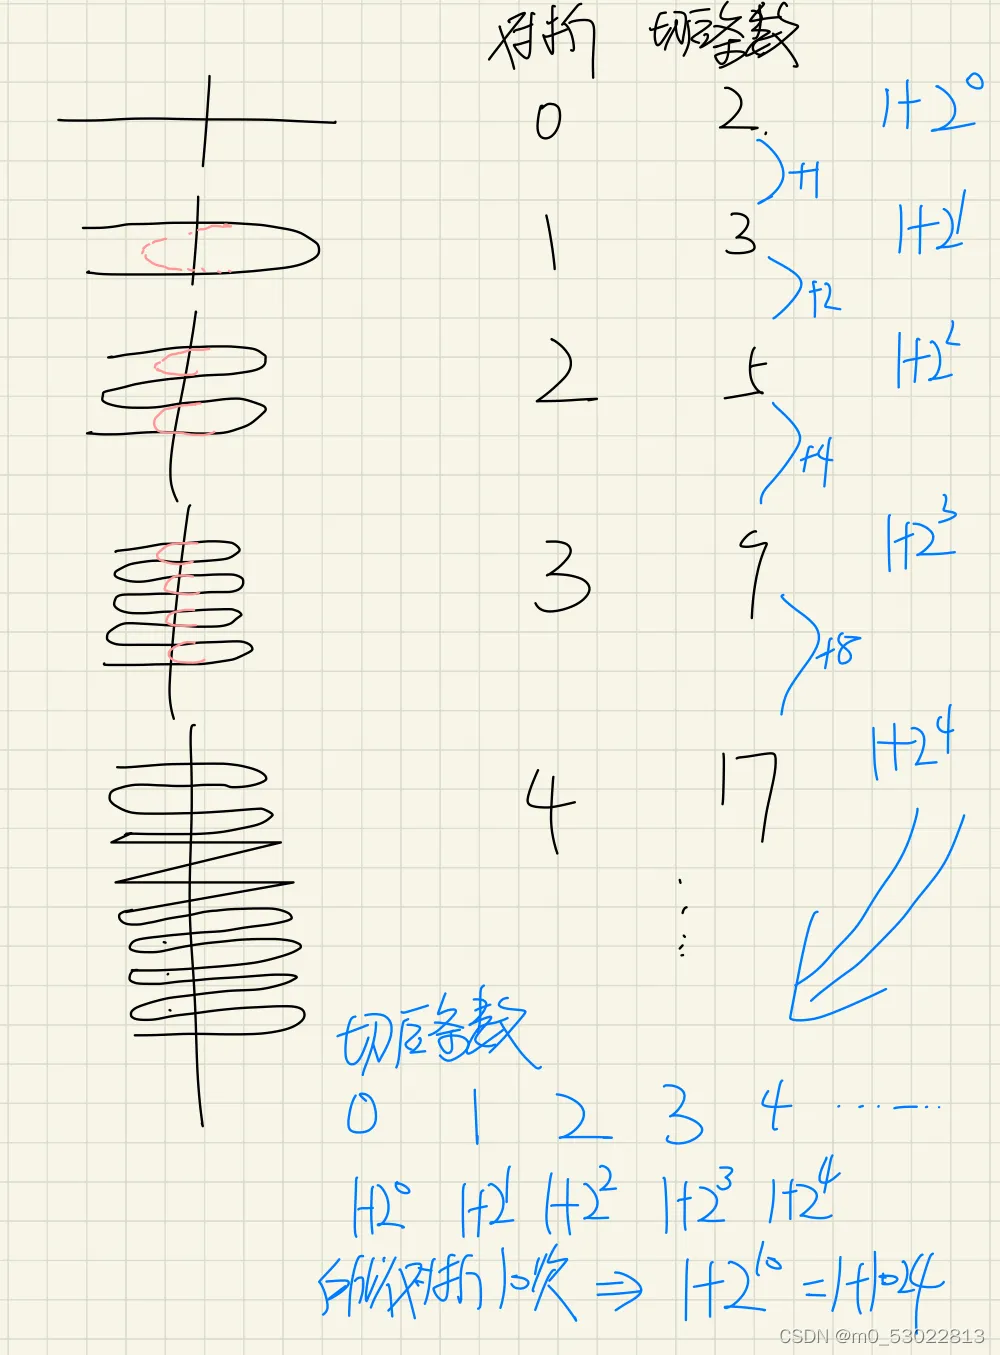 对折 切后条数
0 2 1+2^0
+1
1 3 1+2^1
+2
2 5 1+2^2
+4
3 9 1+2^3
+8
4 17 1+2^4
⋮
切后条数
0 1 2 3 4 ……
1+2^0 1+2^1 1+2^2 1+2^3 1+2^4
所以对折10次 ⇒ 1+2^10 = 1+1024
CSDN @m0_53022813